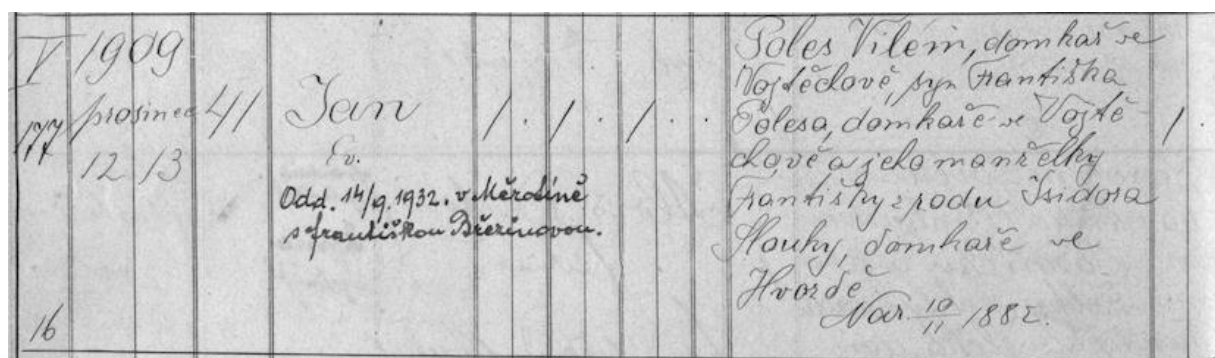 V 1909
177 prosinec 41 Jan / . / . / . .
Ev.
12 13
Odd. 14/9. 1932. v Měrotíně
s Františkou Březinovou.
16
Poles Vilém, domkař ve
Vojtěchově, syn Františka
Polesa, domkaře ve Vojtě-
chově a jeho manželky
Františky z rodu Isidora
Hlouky, domkaře ve
Hvozdě
Nar. 10/11 1882.
/ .